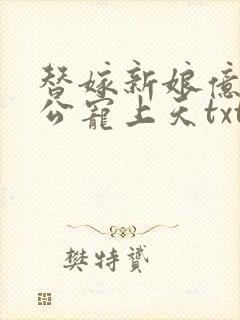 替嫁新娘億
公寵上天txt
樊特贇